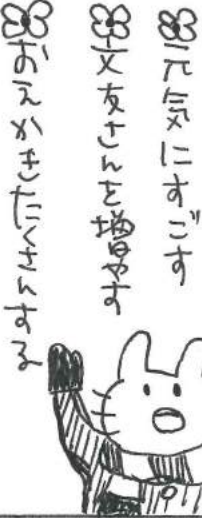 元気にすごす
文友さんを増やす
おえかきたくさんする